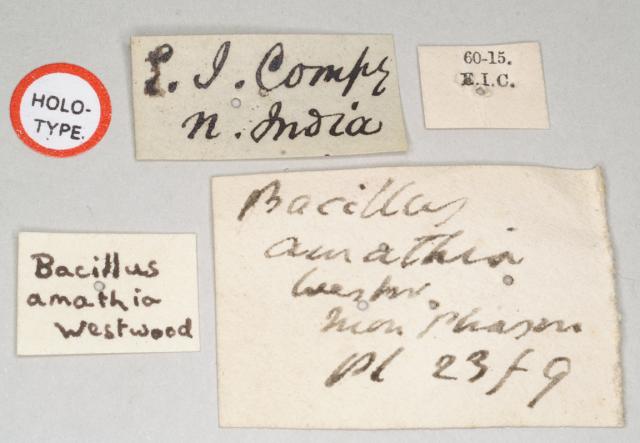 HOLO-
TYPE.
E. I. Compy
N. India
60-15.
E.I.C.
Bacillus
amathia
Westwood
Bacillus
amathia
Westw.
Mon Phasm
Pl 23 f 9